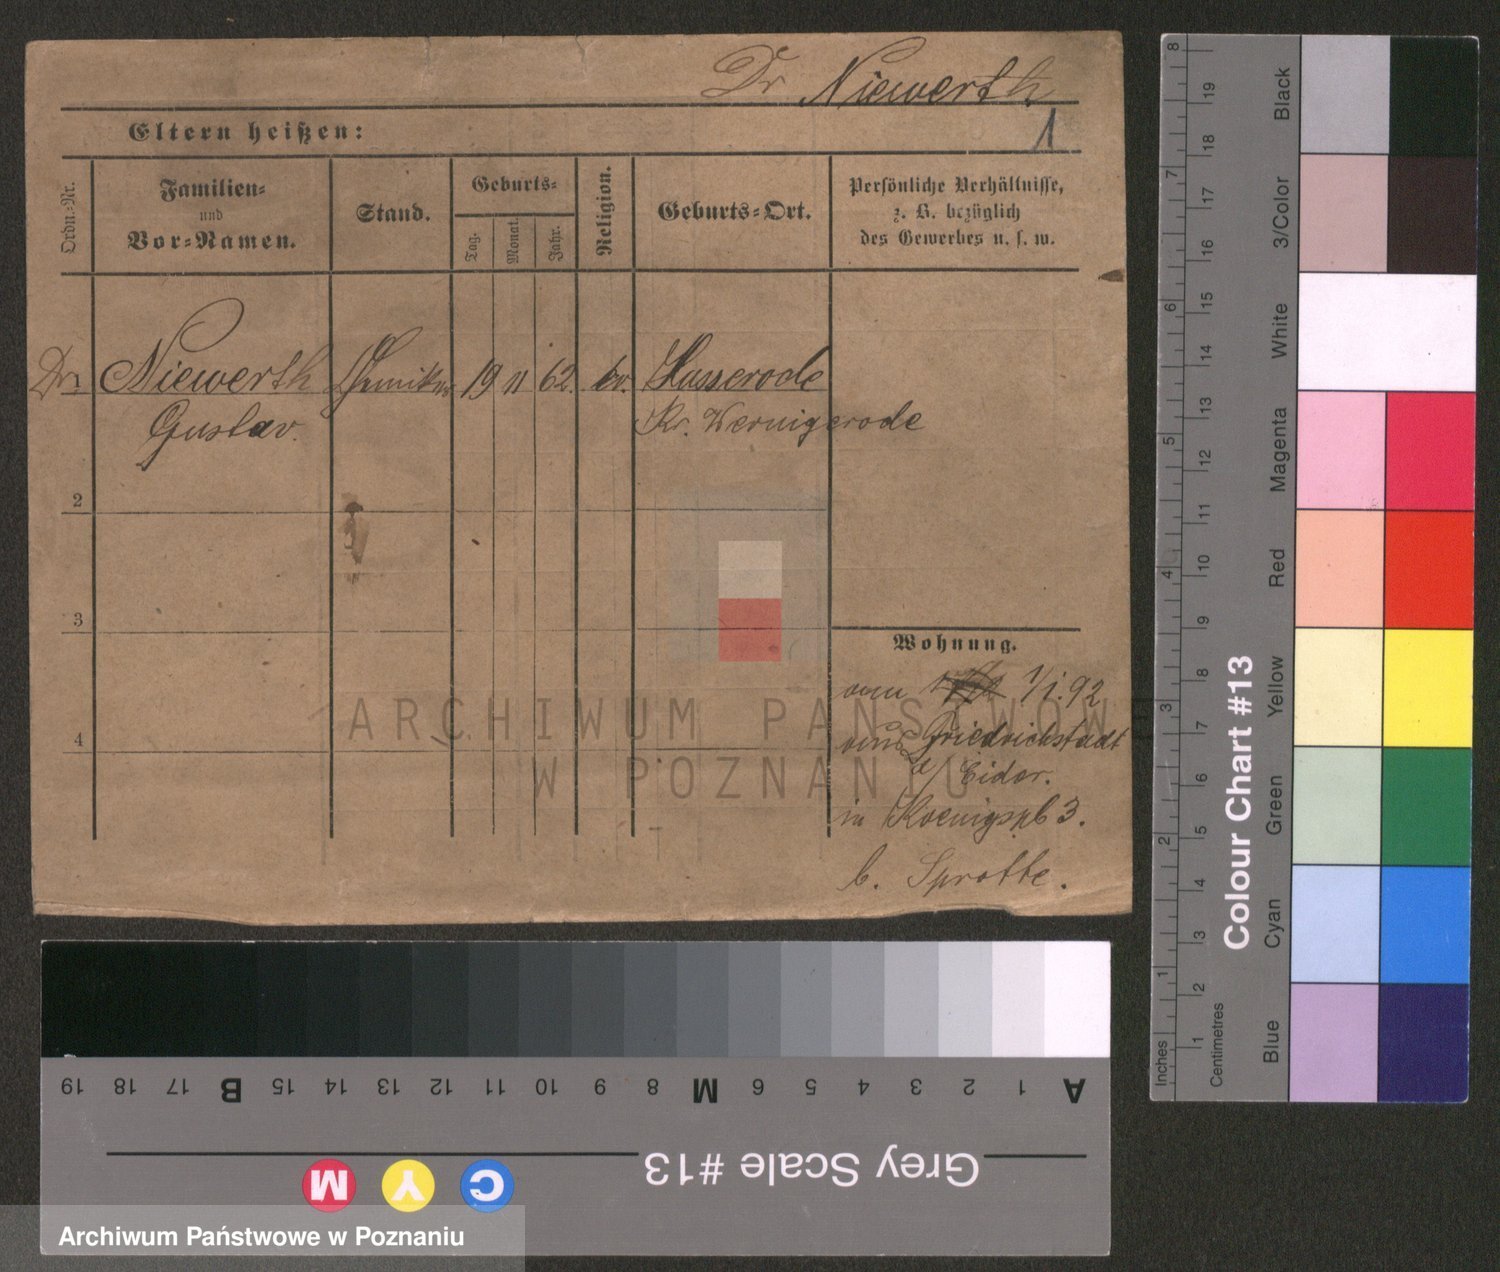 Dr Niewerth
1
Eltern heißen:
Ordn.-Nr.
Familien-
und
Vor-Namen.
Stand.
Geburts-
Tag.
Monat.
Jahr.
Religion.
Geburts-Ort.
Persönliche Verhältnisse,
z. B. bezüglich
des Gewerbes u. s. w.
Dr. 1 Niewerth Chemiker 19 11 62 ev. Hasserode
Gustav. Kr. Wernigerode
2
3
4
Wohnung.
vom 1/1. 92
aus Friedrichstadt
a/ Eider.
in Koenigspl 3.
b. Sprotte.
ARCHIWUM PAŃSTWOWE
W POZNANIU
Inches 1 2 3 4 5 6 7 8
Centimetres 1 2 3 4 5 6 7 8 9 10 11 12 13 14 15 16 17 18 19
Colour Chart #13
Blue
Cyan
Green
Yellow
Red
Magenta
White
3/Color
Black
Grey Scale #13
A 1 2 3 4 5 6 M 8 9 10 11 12 13 14 15 B 17 18 19
C Y M
Archiwum Państwowe w Poznaniu